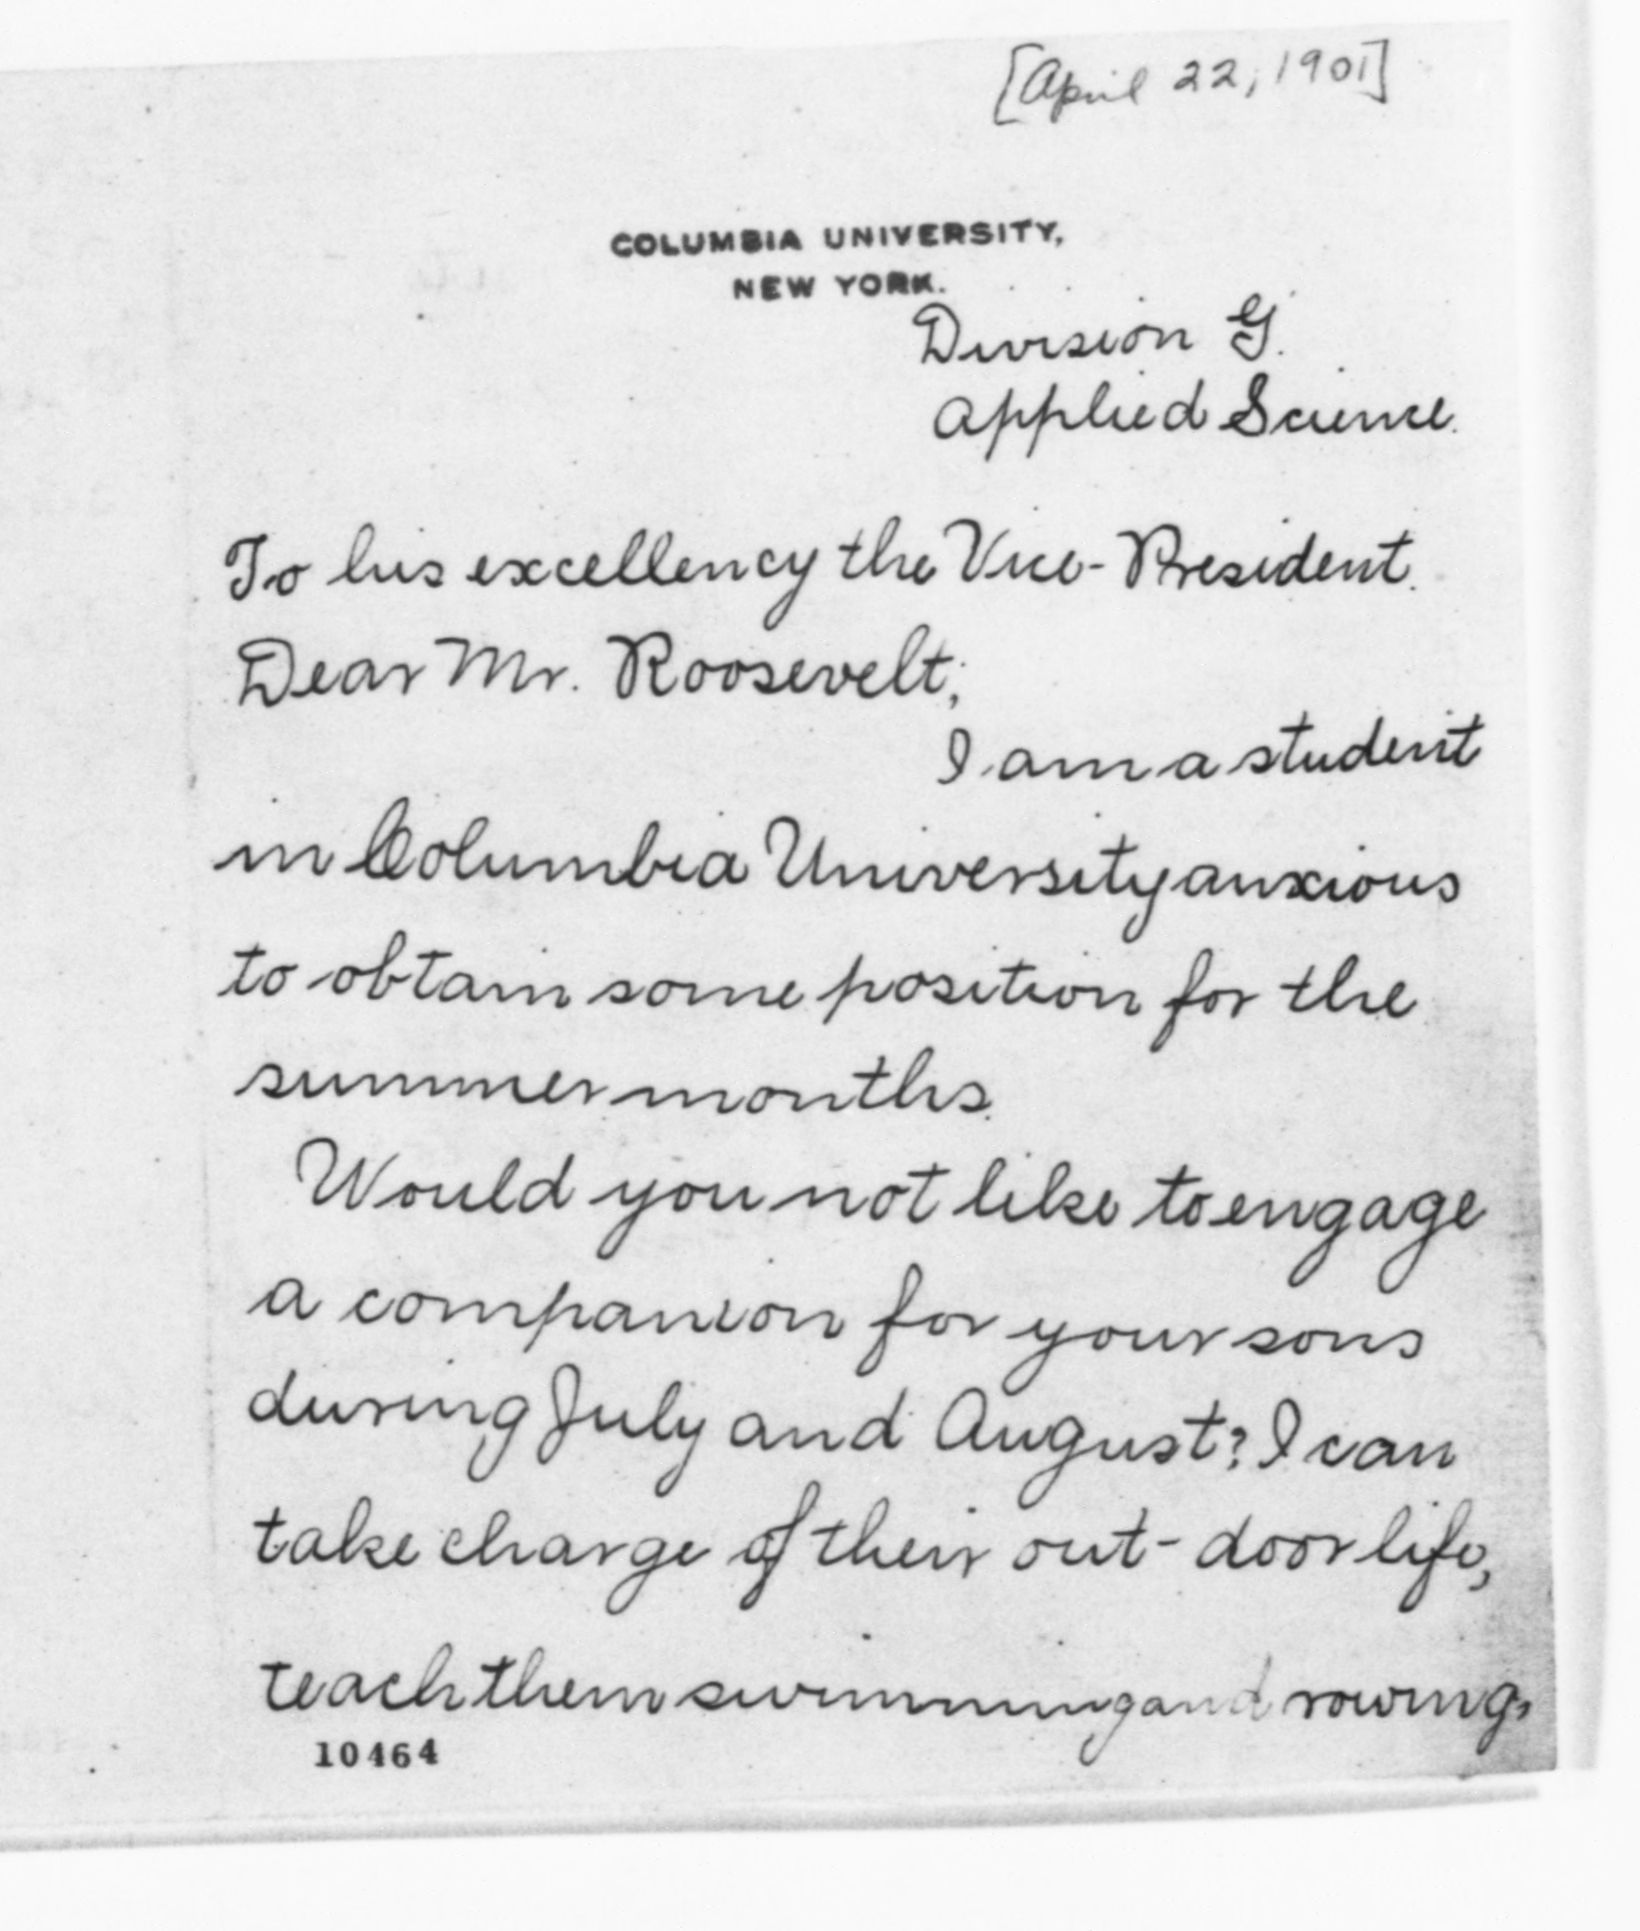 [April 22, 1901]
COLUMBIA UNIVERSITY,
NEW YORK.
Division G.
Applied Science.
To his excellency the Vice-President.
Dear Mr. Roosevelt;
I am a student
in Columbia University anxious
to obtain some position for the
summer months.
Would you not like to engage
a companion for your sons
during July and August? I can
take charge of their out-door life,
teach them swimming and rowing,
10464